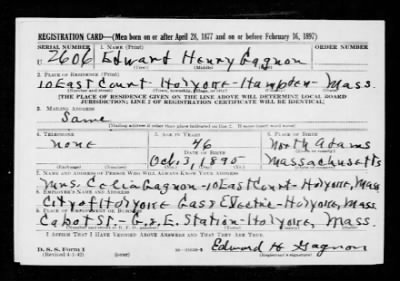 REGISTRATION CARD—(Men born on or after April 28, 1877 and on or before February 16, 1897)
SERIAL NUMBER 1. NAME (Print)
U 2606 Edward Henry Gagnon
(First) (Middle) (Last)
2. PLACE OF RESIDENCE (Print)
10 East Court - Holyoke - Hampden - Mass.
(Number and street) (Town, township, village, or city) (County) (State)
[THE PLACE OF RESIDENCE GIVEN ON THE LINE ABOVE WILL DETERMINE LOCAL BOARD
JURISDICTION; LINE 2 OF REGISTRATION CERTIFICATE WILL BE IDENTICAL]
3. MAILING ADDRESS
Same
[Mailing address if other than place indicated on line 2. If same insert word same]
4. TELEPHONE 5. AGE IN YEARS 6. PLACE OF BIRTH
None 46 North Adams
DATE OF BIRTH (Town or county)
Oct. 3, 1895 Massachusetts
(Exchange) (Number) (Mo.) (Day) (Yr.) (State or country)
7. NAME AND ADDRESS OF PERSON WHO WILL ALWAYS KNOW YOUR ADDRESS
Mrs. Celia Gagnon - 10 East Court - Holyoke, Mass
8. EMPLOYER'S NAME AND ADDRESS
City of Holyoke Gas & Electric - Holyoke, Mass.
9. PLACE OF EMPLOYMENT OR BUSINESS
Cabot St. - G. & E. Station - Holyoke, Mass.
(Number and street or R. F. D. number) (Town) (County) (State)
I AFFIRM THAT I HAVE VERIFIED ABOVE ANSWERS AND THAT THEY ARE TRUE.
D. S. S. Form 1
(Revised 4-1-42) Edward H Gagnon
(Registrant's signature)